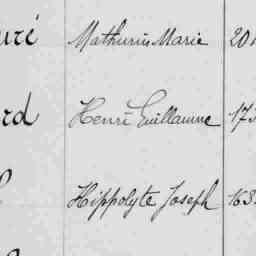 uré Mathurin Marie 20
rd Henri Guillaume 173
Hippolyte Joseph 163